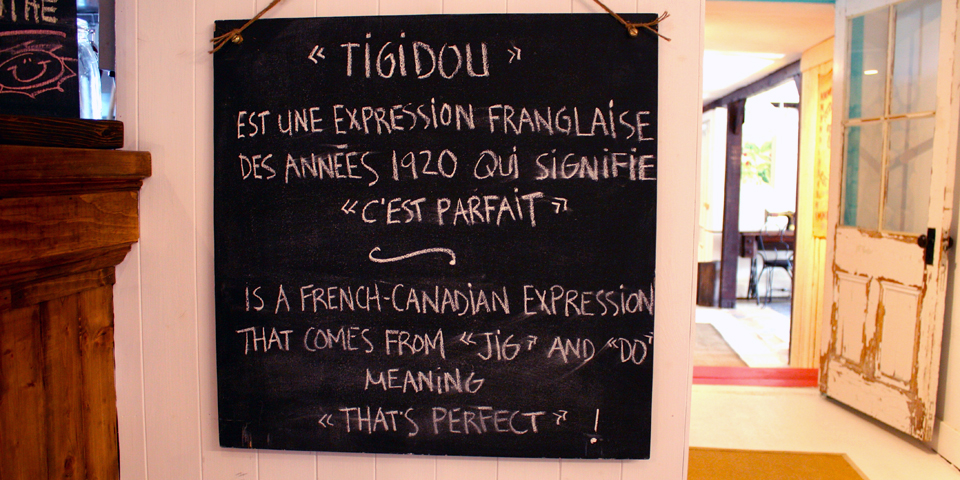 « TIGIDOU »
EST UNE EXPRESSION FRANGLAISE
DES ANNÉES 1920 QUI SIGNIFIE
« C'EST PARFAIT »
IS A FRENCH-CANADIAN EXPRESSION
THAT COMES FROM « JIG » AND « DO »
MEANING
« THAT'S PERFECT » !